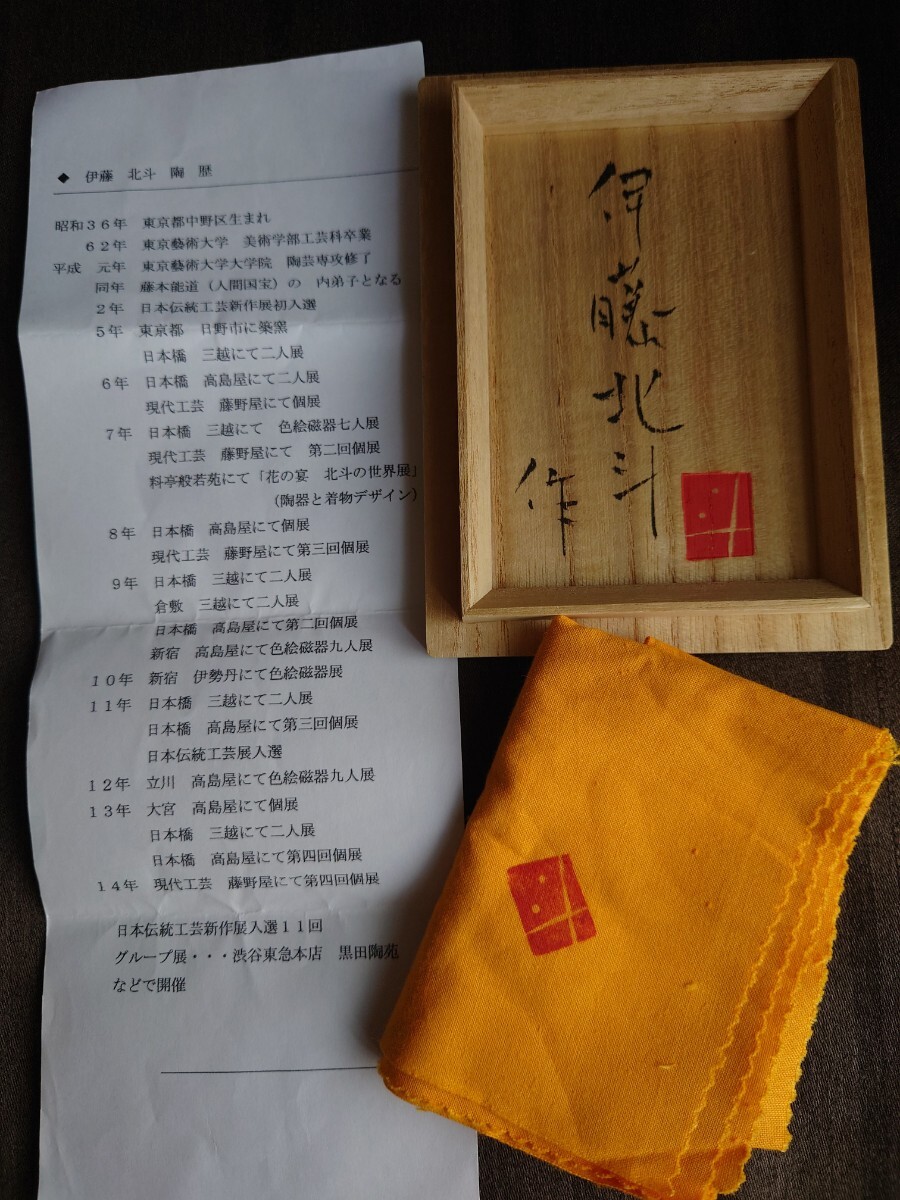 ◆ 伊藤 北斗 陶 歴
昭和36年 東京都中野区生まれ
62年 東京藝術大学 美術学部工芸科卒業
平成 元年 東京藝術大学大学院 陶芸専攻修了
同年 藤本能道(人間国宝)の 内弟子となる
2年 日本伝統工芸新作展初入選
5年 東京都 日野市に築窯
日本橋 三越にて二人展
6年 日本橋 高島屋にて二人展
現代工芸 藤野屋にて個展
7年 日本橋 三越にて 色絵磁器七人展
現代工芸 藤野屋にて 第二回個展
料亭般若苑にて「花の宴 北斗の世界展」
(陶器と着物デザイン)
8年 日本橋 高島屋にて個展
現代工芸 藤野屋にて第三回個展
9年 日本橋 三越にて二人展
倉敷 三越にて二人展
日本橋 高島屋にて第二回個展
新宿 高島屋にて色絵磁器九人展
10年 新宿 伊勢丹にて色絵磁器展
11年 日本橋 三越にて二人展
日本橋 高島屋にて第三回個展
日本伝統工芸展入選
12年 立川 高島屋にて色絵磁器九人展
13年 大宮 高島屋にて個展
日本橋 三越にて二人展
日本橋 高島屋にて第四回個展
14年 現代工芸 藤野屋にて第四回個展
日本伝統工芸新作展入選11回
グループ展・・・渋谷東急本店 黒田陶苑
などで開催
伊藤北斗
作
斗
斗